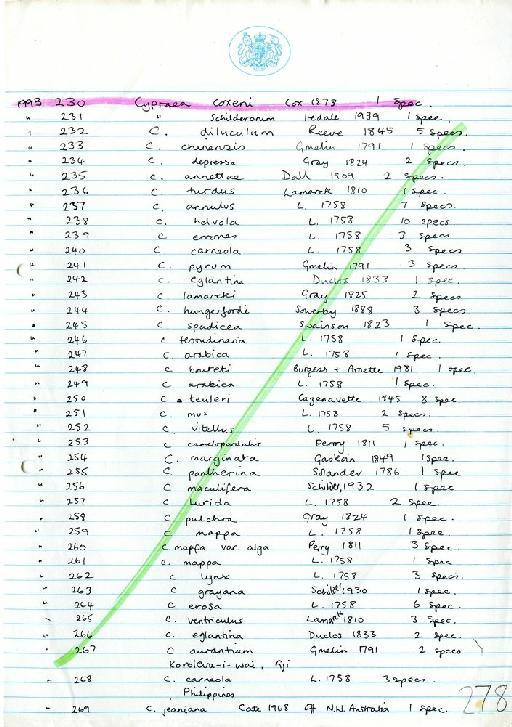 1993 230 Cypraea coxeni Cox 1873 1 Spec.
" 231 " Schilderorum Iredale 1939 1 Spec.
" 232 C. diluculum Reeve 1845 5 Specs.
" 233 C. chinensis Gmelin 1791 1 Spec.
" 234 C. depressa Gray 1824 2 Specs.
" 235 C. annettae Dall 1909 2 Specs.
" 236 C. turdus Lamarck 1810 1 Spec.
" 237 C. annulus L. 1758 7 Specs
" 238 C. helvola L. 1758 10 Specs
" 239 C. errones L. 1758 3 Specs
" 240 C. carneola L. 1758 3 Specs
" 241 C. pyrum Gmelin 1791 3 Specs.
" 242 C. eglantina Duclos 1833 1 Spec.
" 243 C. lamarcki Gray 1825 2 Specs
" 244 C. hungerfordi Sowerby 1888 3 Specs
" 245 C. spadicea Swainson 1823 1 Spec.
" 246 C. L. 1758 1 Spec.
" 247 C. arabica L. 1758 1 Spec.
" 248 C. Burgess + Arnette 1981 1 Spec.
" 249 C. arabica L. 1758 1 Spec.
" 250 C. teuleri Cazenavette 1845 8 Spec.
" 251 C. mus L. 1758 2 Specs.
" 252 C. vitellus L. 1758 5 Specs.
" 253 C camelopardalis Perry 1811 1 Spec.
" 254 C. marginata Gaskoin 1849 1 Spec.
" 255 C. pantherina Solander 1786 1 Spec
" 256 C. maculifera Schilder, 1932 1 Spec
" 257 C. lurida L. 1758 2 Spec.
" 258 C pulchra Gray 1824 1 Spec.
" 259 C mappa L. 1758 1 Spec.
" 260 C mappa var alga Perry 1811 3 Spec.
" 261 C. mappa L. 1758 1 Spec
" 262 C lynx L. 1758 3 Specs.
" 263 C grayana Schild. 1930 1 Spec.
" 264 C erosa L. 1758 6 Spec.
" 265 C. ventriculus 1810 3 Spec.
" 266 C. eglantina Duclos 1833 2 Spec.
" 267 C aurantium Gmelin 1791 2 Specs
Fiji
" 268 C. carneola L. 1758 3 Specs.
Philippines
" 269 C. jeaniana Cate 1968 off N.W. Australia 1 Spec.
278